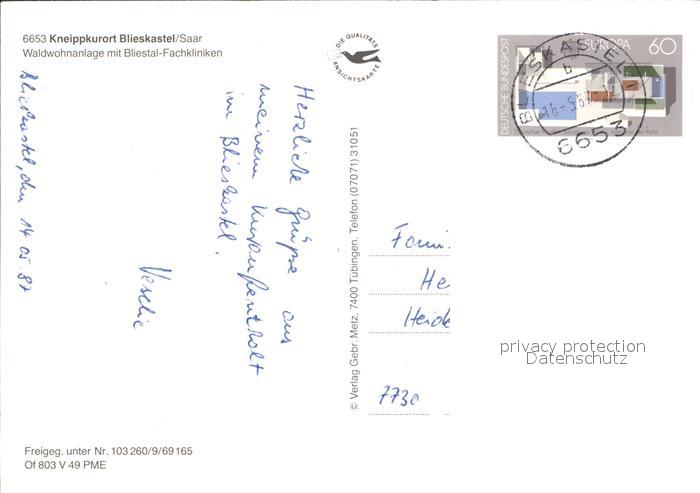 6653 Kneippkurort Blieskastel/Saar
Waldwohnanlage mit Bliestal-Fachkliniken
DIE QUALITÄTS
ANSICHTSKARTE
DEUTSCHE BUNDESPOST
EUROPA 60
BLIESKASTEL
b
6653
Blieskastel, den 14 05 87
Herzliche Grüße aus
meinem Kuraufenthalt
in Blieskastel.
© Verlag Gebr. Metz, 7400 Tübingen, Telefon (07071) 31051
Fam.
He
Heide
7730
privacy protection
Datenschutz
Freigeg. unter Nr. 103 260/9/69 165
Of 803 V 49 PME